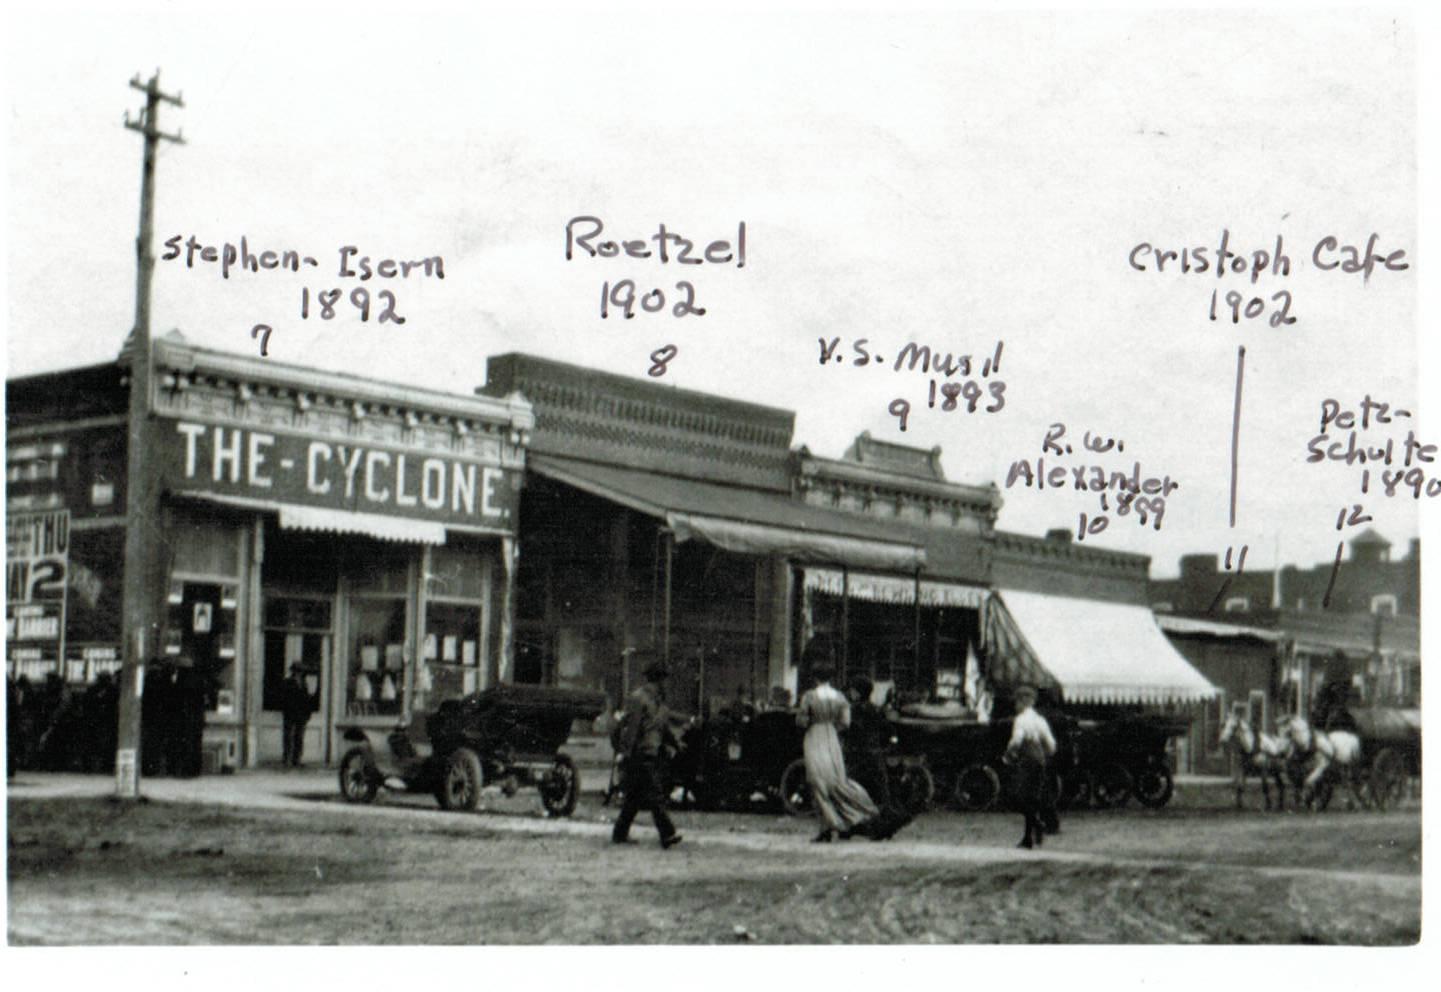 Stephen- Isern
1892
7
Roetzel
1902
8
V. S. Musil
1893
9
R. W.
Alexander
1899
10
Cristoph Cafe
1902
11
Petz-
Schulte
1890
12
THE-CYCLONE.
THU
2